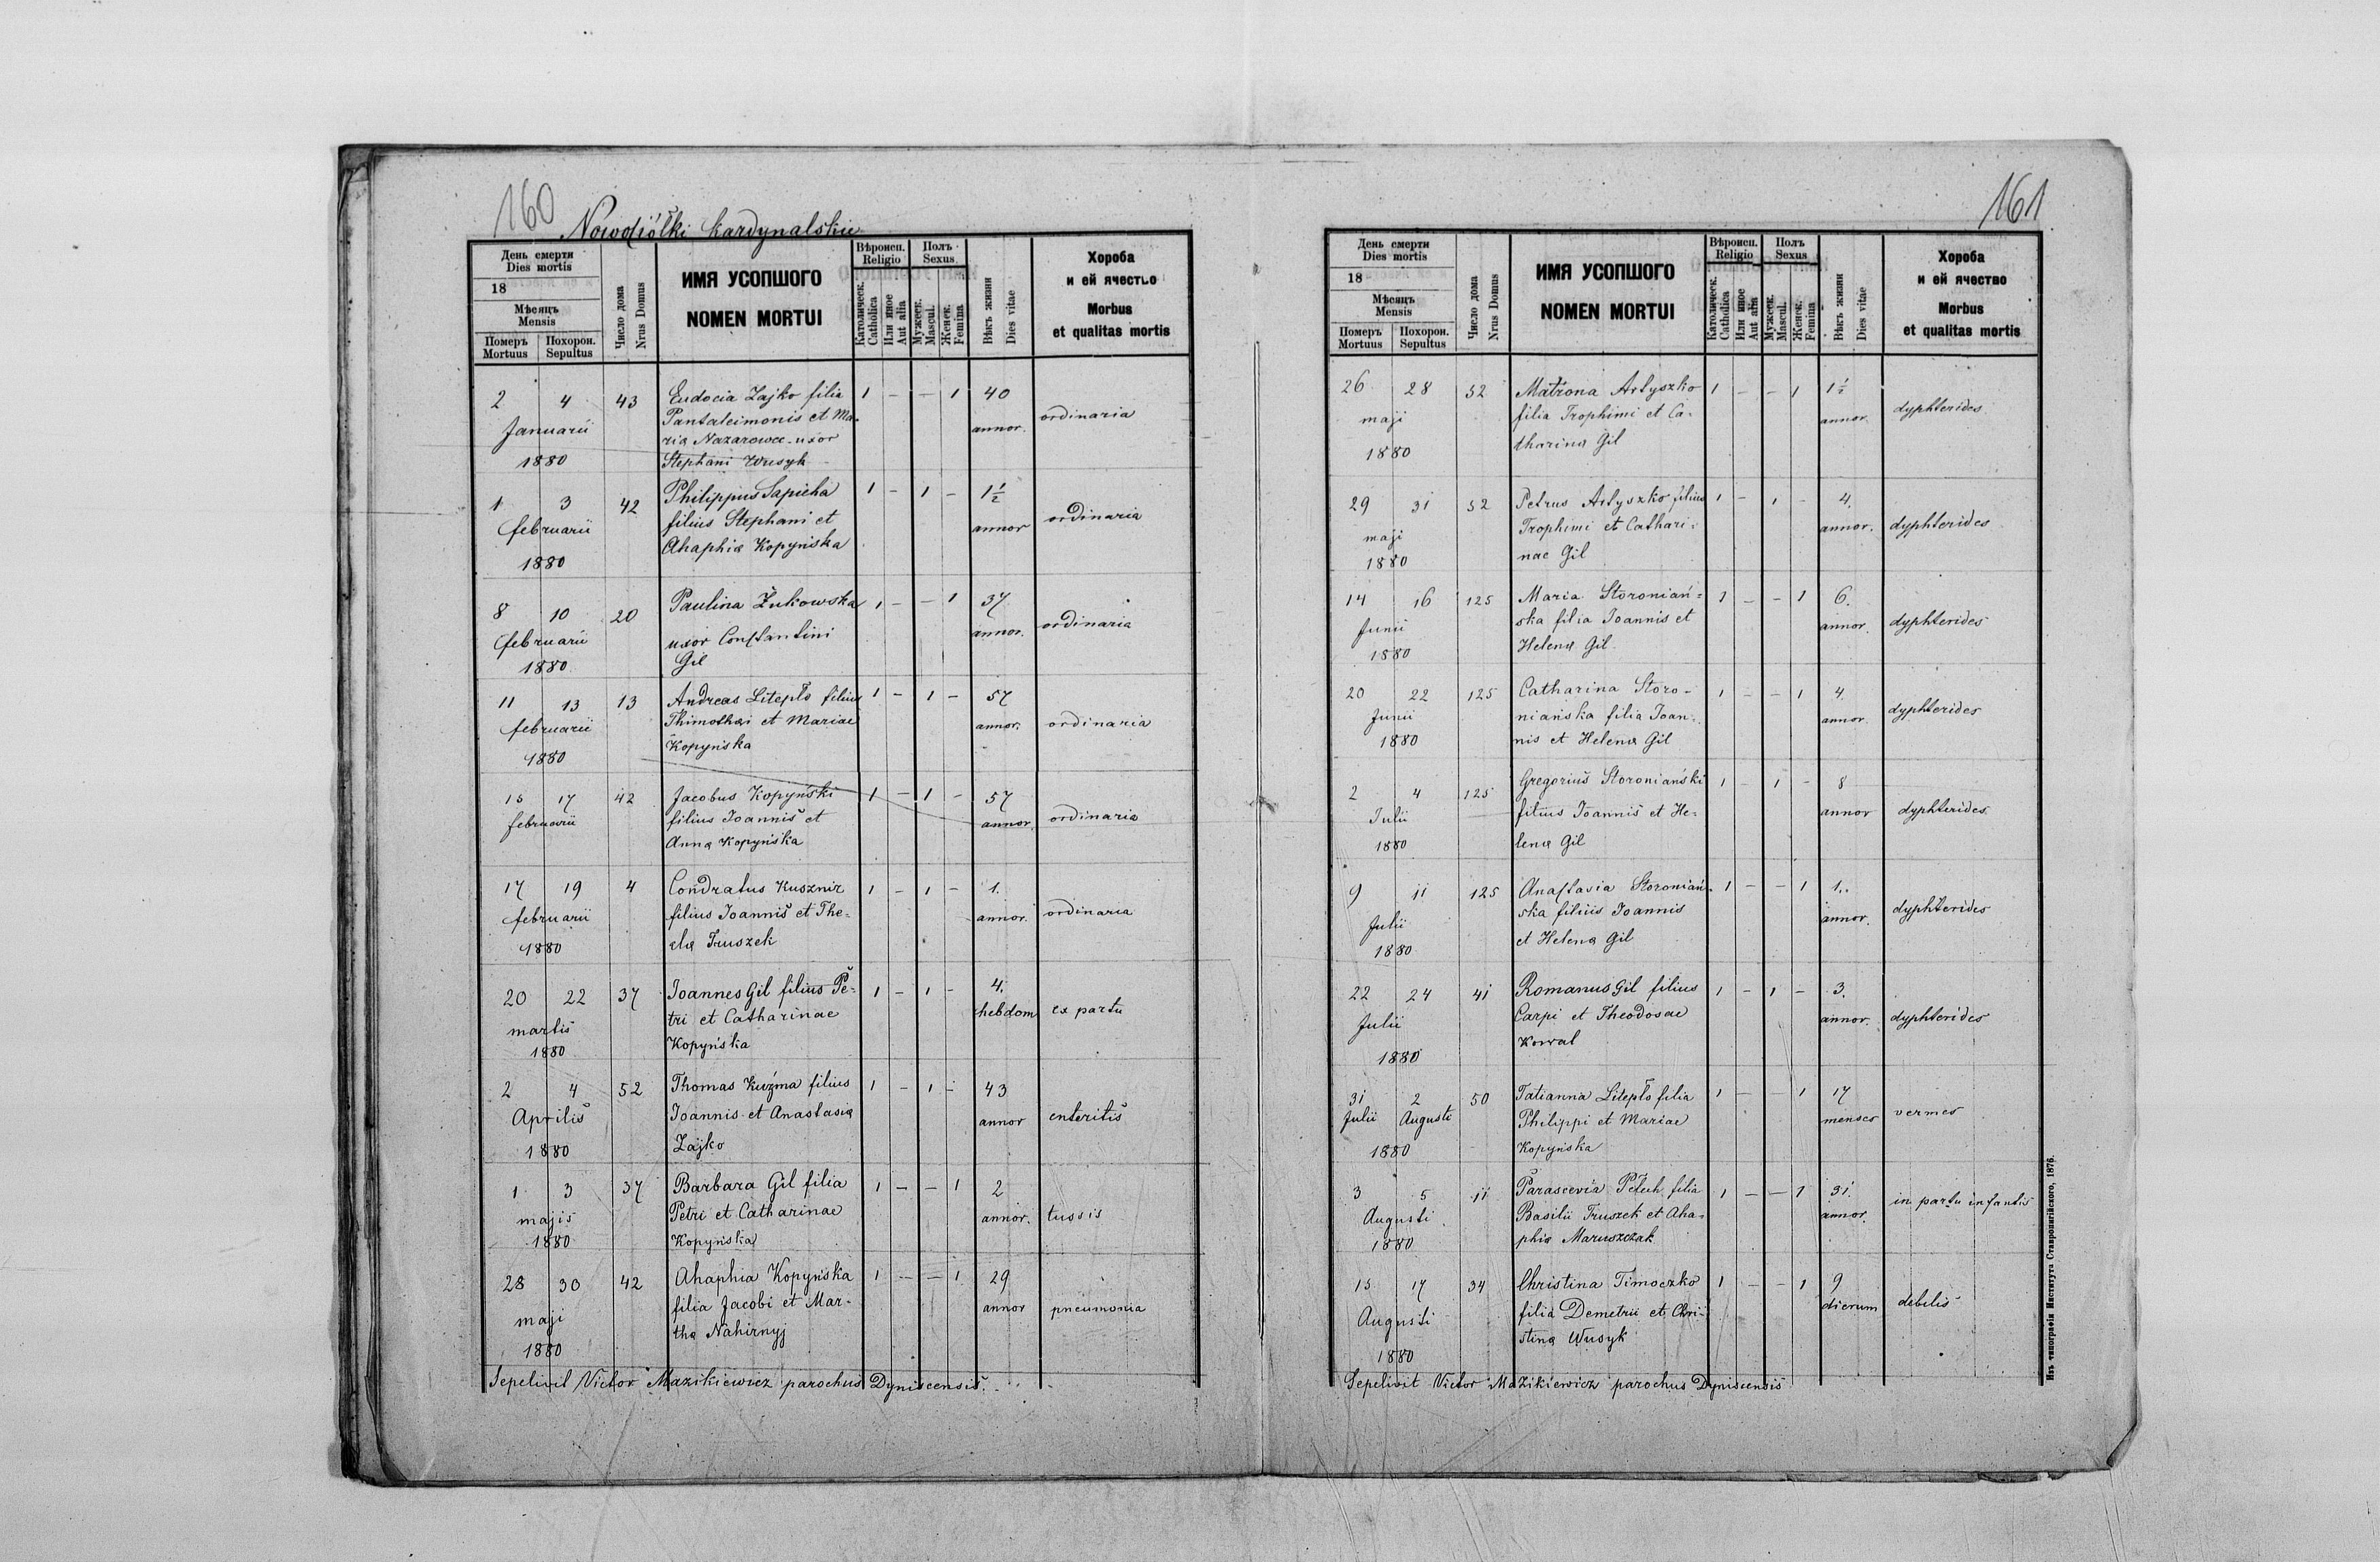 160
Nowosiółki kardynalskie
День смерти
Dies mortis
18
Мѣсяцъ
Mensis
Померъ Похорон.
Mortuus Sepultus
Число дома
Nrus Domus
ИМЯ УСОПШОГО
NOMEN MORTUI
Вѣроисп.
Religio
Католическ.
Catholica
Или иное
Aut alia
Полъ
Sexus
Мужеск.
Mascul.
Женск.
Femina
Вѣкъ жизни
Dies vitae
Хороба
и ей ячество
Morbus
et qualitas mortis
2 4 43 Eudocia Zajko filia 1 – – 1 40
Januarii Pantaleimonis et Ma- annor. ordinaria
ria Nazarowce uxor
1880 Stephani Wusyk
1 3 42 Philippus Sapieha 1 – 1 – 1½
februarii filius Stephani et annor ordinaria
1880 Ahaphia Kopyńska
8 10 20 Paulina Żukowska 1 – – 1 37
februarii uxor Constantini annor. ordinaria
1880 Gil
11 13 13 Andreas Litepło filius 1 – 1 – 57
februarii Thimothei et Mariae annor. ordinaria
1880 Kopyńska
15 17 42 Jacobus Kopyński 1 – 1 – 57
februarii filius Joannis et annor. ordinaria
Anna Kopyńska
17 19 4 Condratus Kusznir 1 – 1 – 1.
februarii filius Joannis et The- annor. ordinaria
1880 cla Truszek
20 22 37 Joannes Gil filius Pe- 1 – 1 – 4.
martis tri et Catharinae hebdom ex partu
1880 Kopyńska
2 4 52 Thomas Kuźma filius 1 – 1 – 43
Aprilis Joannis et Anastasia annor enteritis
1880 Zajko
1 3 37 Barbara Gil filia 1 – – 1 2
majis Petri et Catharinae annor. tussis
1880 Kopyńska
28 30 42 Ahaphia Kopyńska 1 – – 1 29
maji filia Jacobi et Mar- annor pneumonia
1880 tha Nahirnyj
Sepelivit Victor Mazikiewicz parochus Dyniscensis.
161
День смерти
Dies mortis
18
Мѣсяцъ
Mensis
Померъ Похорон.
Mortuus Sepultus
Число дома
Nrus Domus
ИМЯ УСОПШОГО
NOMEN MORTUI
Вѣроисп.
Religio
Католическ.
Catholica
Или иное
Aut alia
Полъ
Sexus
Мужеск.
Mascul.
Женск.
Femina
Вѣкъ жизни
Dies vitae
Хороба
и ей ячество
Morbus
et qualitas mortis
26 28 52 Matrona Artyszko 1 – – 1 1½
maji filia Trophimi et Ca- annor. dyphterides
1880 tharina Gil
29 31 52 Petrus Artyszko filius 1 – 1 – 4.
maji Trophimi et Cathari- annor. dyphterides
1880 nae Gil
14 16 125 Maria Storoniań- 1 – – 1 6.
Junii ska filia Joannis et annor. dyphterides
1880 Helena Gil
20 22 125 Catharina Storo- 1 – – 1 4.
Junii niańska filia Joan- annor. dyphterides
1880 nis et Helena Gil
2 4 125 Gregorius Storoniański 1 – 1 – 8
Julii filius Joannis et He- annor dyphterides
1880 lena Gil
9 11 125 Anastasia Storoniań- 1 – – 1 1.
Julii ska filiis Joannis annor. dyphterides
1880 et Helena Gil
22 24 41 Romanus Gil filius 1 – 1 – 3.
Julii Carpi et Theodosae annor. dyphterides
1880 Kowal
31 2 50 Tatianna Litepło filia 1 – – 1 17
Julii Augusti Philippi et Mariae menses vermes
1880 Kopyńska
3 5 11 Parascevia Petech filia 1 – – 1 31.
Augusti Basilii Truszek et Aha- annor. in partu infantis
1880 phia Maruszczak
15 17 34 Christina Timoczko 1 – – 1 9
Augusti filia Demetrii et Chri- dierum debilis
1880 stina Wusyk
Sepelivit Victor Mazikiewicz parochus Dyniscensis
Изъ типографіи Института Ставропигійского, 1876.